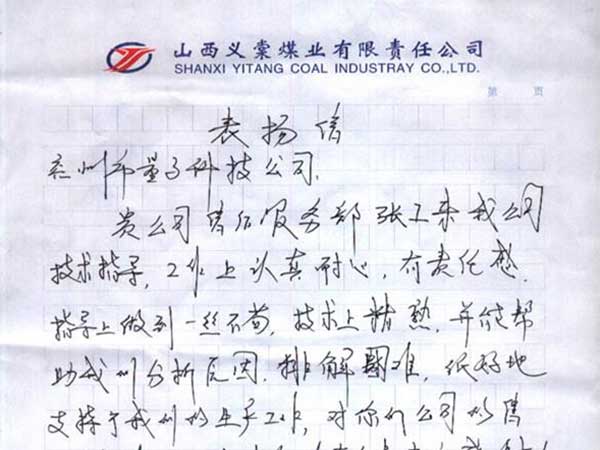 山西义棠煤业有限責任公司
SHANXI YITANG COAL INDUSTRAY CO.,LTD.
第 页
表扬信
兖州市量子科技公司.
贵公司售后服务部张工来我公司
技术指导,工作上认真耐心,有责任感,
指导上做到一丝不苟,技术上精熟,并能帮
助我们分析原因,排解困难,很好地
支持了我们的生产工作,对你们公司的售